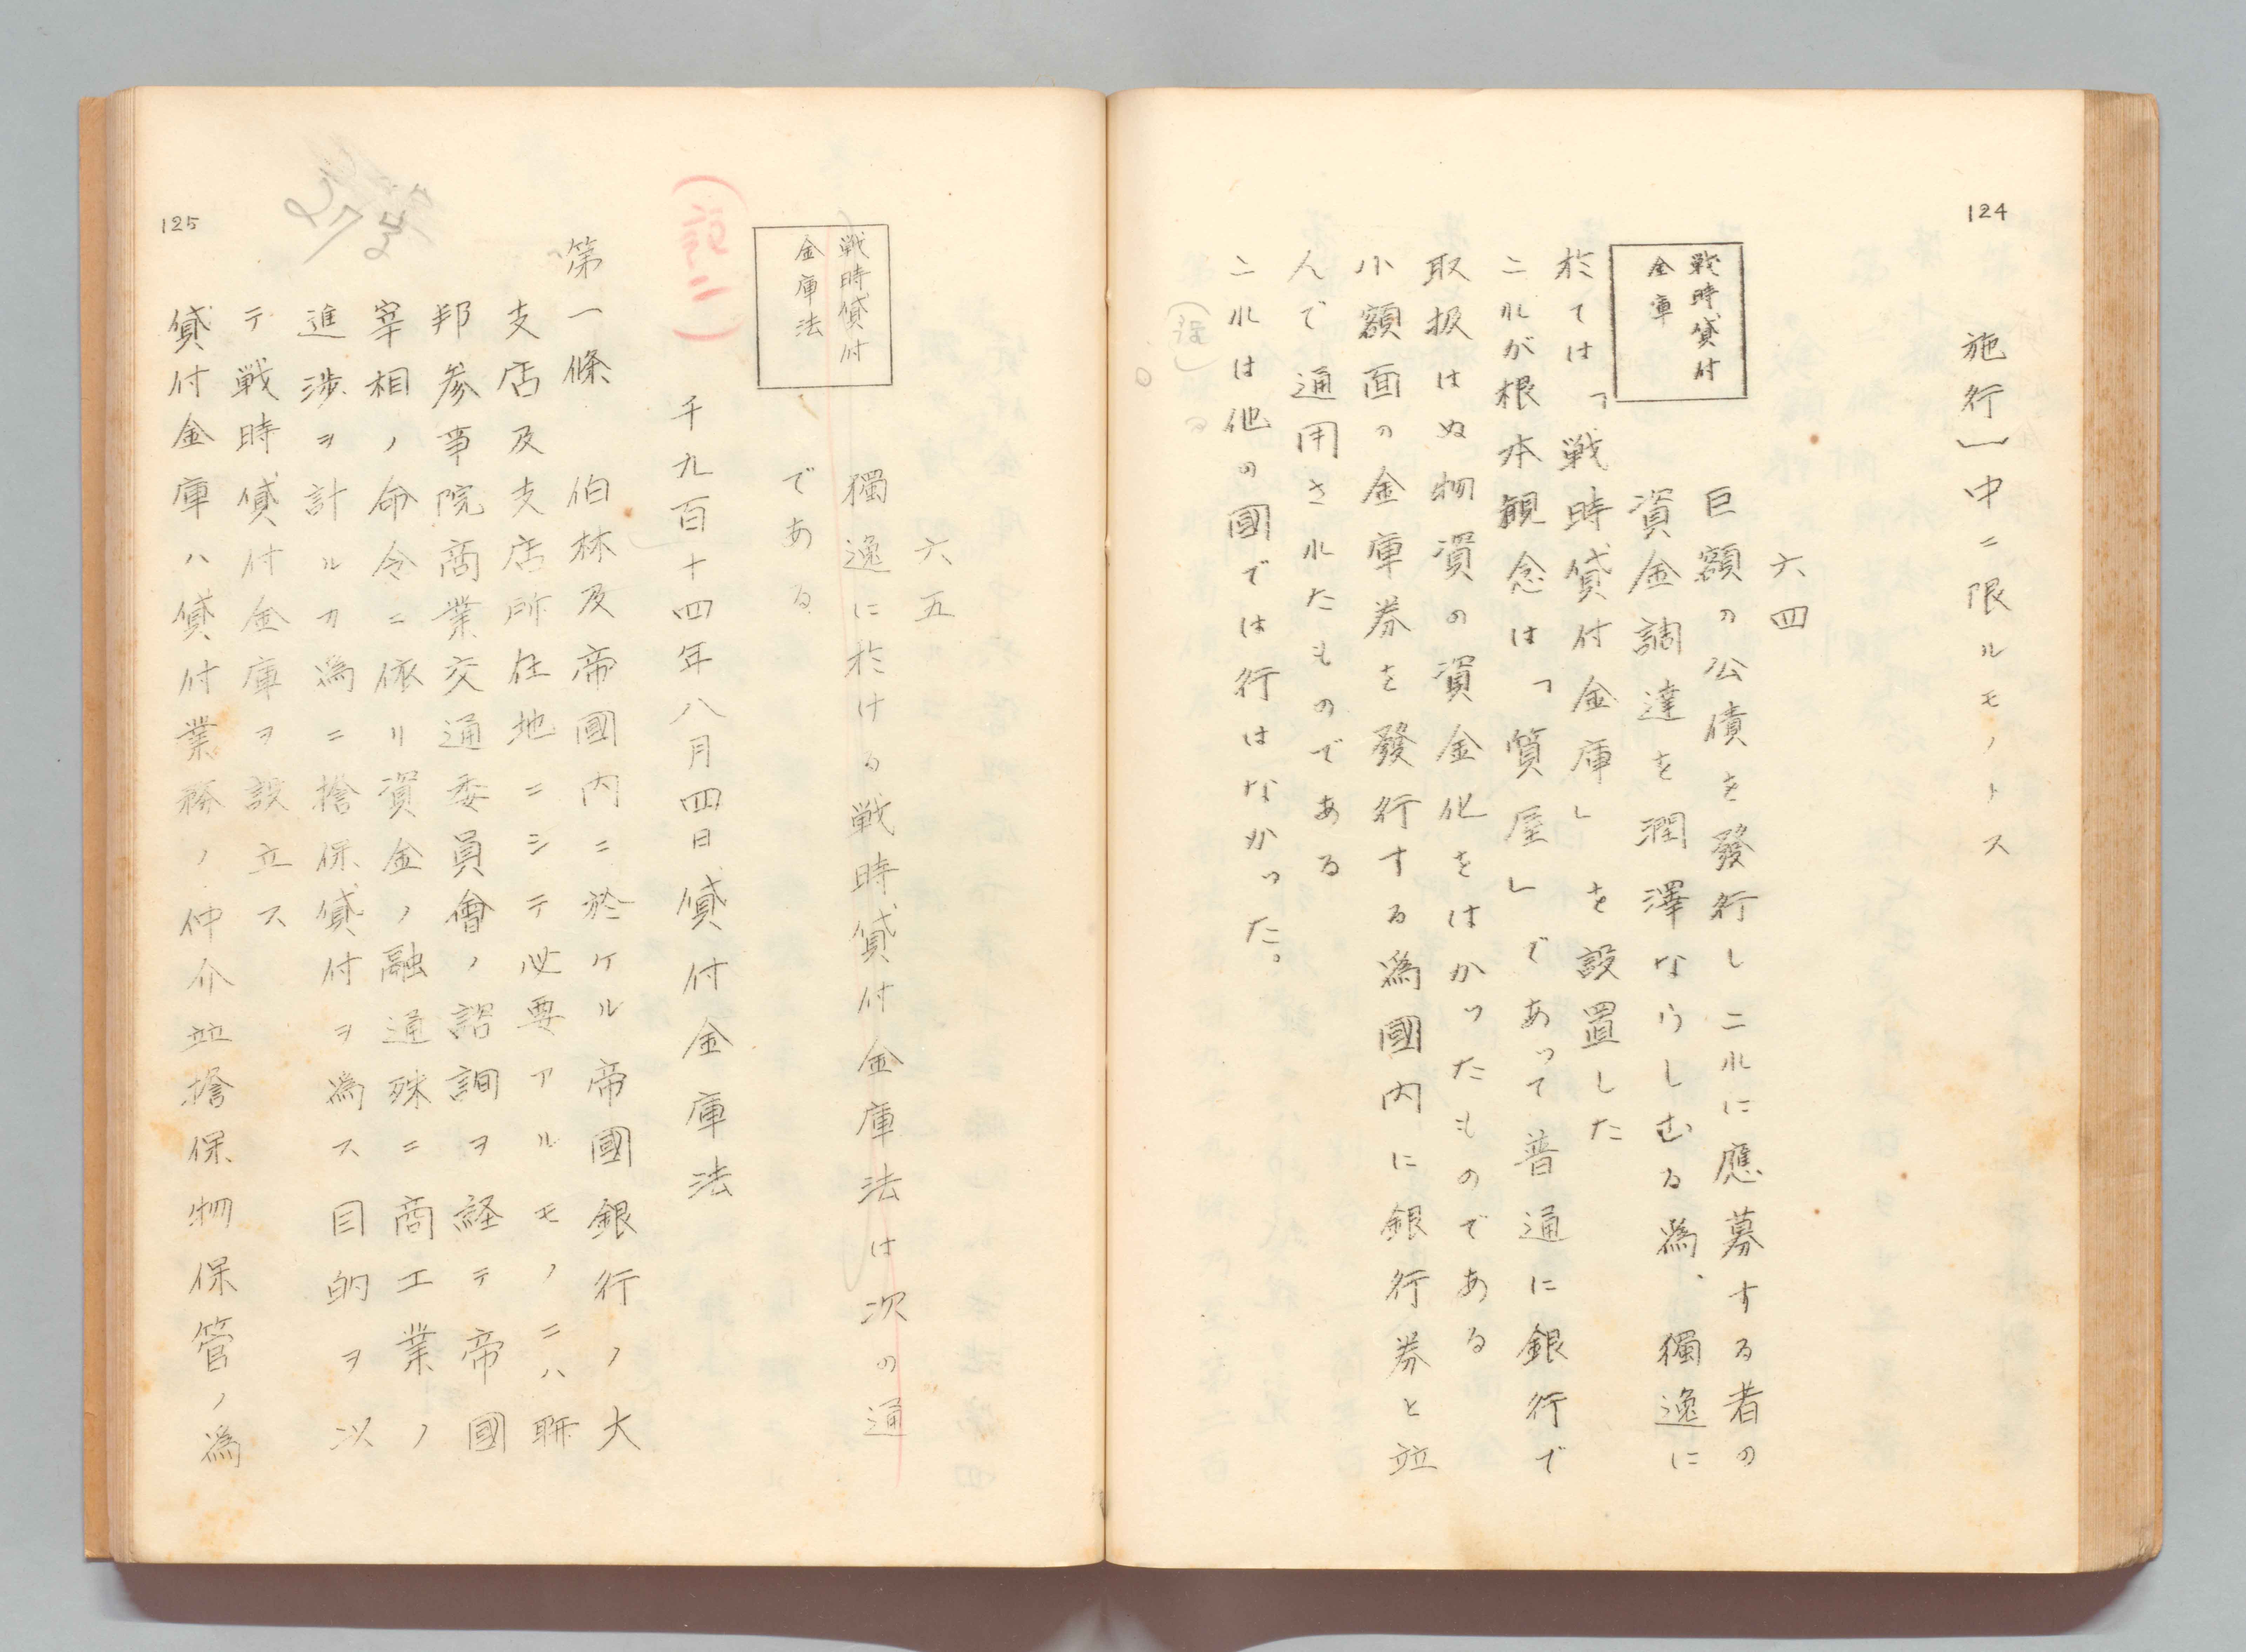 124
施行)中ニ限ルモノトス
六四
戦時貸付
金庫
巨額の公債を發行しこれに應募する者の
資金調達を潤澤ならしむる為、獨逸に
於ては「戦時貸付金庫」を設置した
これが根本観念は「質屋」であって普通に銀行で
取扱はぬ物資の資金化をはかったものである
小額面の金庫券を發行する為國内に銀行券と竝
んで通用されたものである
これは他の國では行はなかった。
六五
戦時貸付
金庫法
獨逸に於ける戦時貸付金庫法は次の通
である
(註二)
千九百十四年八月四日貸付金庫法
第一條 伯林及帝國内ニ於ケル帝國銀行ノ大
支店及支店所在地ニシテ必要アルモノニハ聯
邦参事院商業交通委員會ノ諮詢ヲ経テ帝國
宰相ノ命令ニ依リ資金ノ融通殊ニ商工業ノ
進渉ヲ計ルカ為ニ擔保貸付ヲ為ス目的ヲ以
テ戦時貸付金庫ヲ設立ス
貸付金庫ハ貸付業務ノ仲介竝擔保物保管ノ為
125